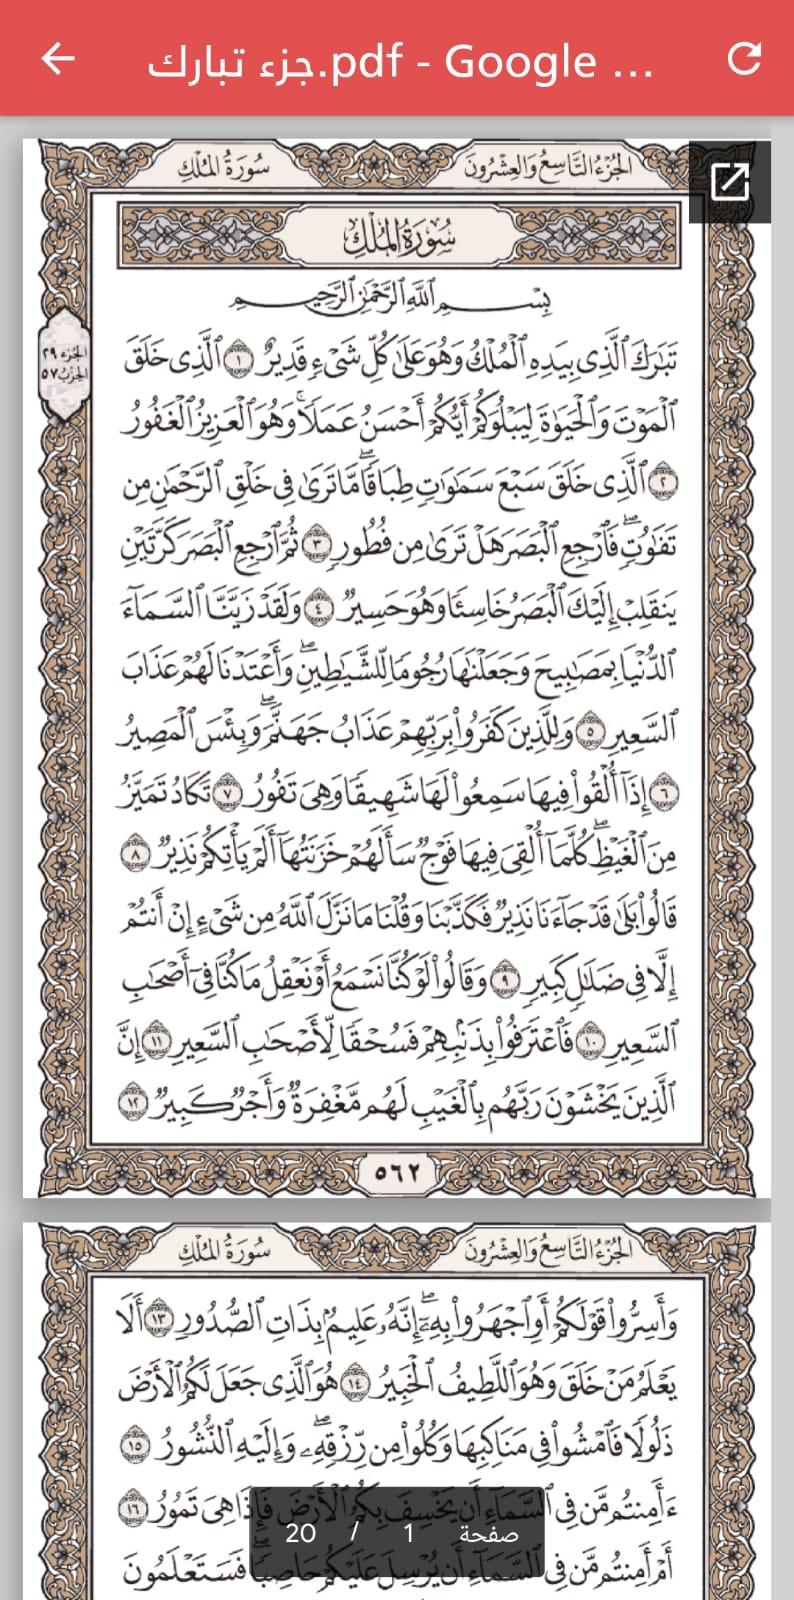 جزء تبارك.pdf - Google ...
الجُزْءُ التَّاسِعُ وَالعِشْرُونَ
سُورَةُ المُلْكِ
سُورَةُ المُلْكِ
الجزء ٢٩
الحزب ٥٧
بِسْمِ ٱللَّهِ ٱلرَّحْمَٰنِ ٱلرَّحِيمِ
تَبَٰرَكَ ٱلَّذِى بِيَدِهِ ٱلْمُلْكُ وَهُوَ عَلَىٰ كُلِّ شَىْءٍ قَدِيرٌ ١ ٱلَّذِى خَلَقَ
ٱلْمَوْتَ وَٱلْحَيَوٰةَ لِيَبْلُوَكُمْ أَيُّكُمْ أَحْسَنُ عَمَلًا ۚ وَهُوَ ٱلْعَزِيزُ ٱلْغَفُورُ
٢ ٱلَّذِى خَلَقَ سَبْعَ سَمَٰوَٰتٍ طِبَاقًا ۖ مَّا تَرَىٰ فِى خَلْقِ ٱلرَّحْمَٰنِ مِن
تَفَٰوُتٍ ۖ فَٱرْجِعِ ٱلْبَصَرَ هَلْ تَرَىٰ مِن فُطُورٍ ٣ ثُمَّ ٱرْجِعِ ٱلْبَصَرَ كَرَّتَيْنِ
يَنقَلِبْ إِلَيْكَ ٱلْبَصَرُ خَاسِئًا وَهُوَ حَسِيرٌ ٤ وَلَقَدْ زَيَّنَّا ٱلسَّمَآءَ
ٱلدُّنْيَا بِمَصَٰبِيحَ وَجَعَلْنَٰهَا رُجُومًا لِّلشَّيَٰطِينِ ۖ وَأَعْتَدْنَا لَهُمْ عَذَابَ
ٱلسَّعِيرِ ٥ وَلِلَّذِينَ كَفَرُوا۟ بِرَبِّهِمْ عَذَابُ جَهَنَّمَ ۖ وَبِئْسَ ٱلْمَصِيرُ
٦ إِذَآ أُلْقُوا۟ فِيهَا سَمِعُوا۟ لَهَا شَهِيقًا وَهِىَ تَفُورُ ٧ تَكَادُ تَمَيَّزُ
مِنَ ٱلْغَيْظِ ۖ كُلَّمَآ أُلْقِىَ فِيهَا فَوْجٌ سَأَلَهُمْ خَزَنَتُهَآ أَلَمْ يَأْتِكُمْ نَذِيرٌ ٨
قَالُوا۟ بَلَىٰ قَدْ جَآءَنَا نَذِيرٌ فَكَذَّبْنَا وَقُلْنَا مَا نَزَّلَ ٱللَّهُ مِن شَىْءٍ إِنْ أَنتُمْ
إِلَّا فِى ضَلَٰلٍ كَبِيرٍ ٩ وَقَالُوا۟ لَوْ كُنَّا نَسْمَعُ أَوْ نَعْقِلُ مَا كُنَّا فِىٓ أَصْحَٰبِ
ٱلسَّعِيرِ ١٠ فَٱعْتَرَفُوا۟ بِذَنۢبِهِمْ فَسُحْقًا لِّأَصْحَٰبِ ٱلسَّعِيرِ ١١ إِنَّ
ٱلَّذِينَ يَخْشَوْنَ رَبَّهُم بِٱلْغَيْبِ لَهُم مَّغْفِرَةٌ وَأَجْرٌ كَبِيرٌ ١٢
٥٦٢
الجُزْءُ التَّاسِعُ وَالعِشْرُونَ
سُورَةُ المُلْكِ
وَأَسِرُّوا۟ قَوْلَكُمْ أَوِ ٱجْهَرُوا۟ بِهِۦٓ ۖ إِنَّهُۥ عَلِيمٌۢ بِذَاتِ ٱلصُّدُورِ ١٣ أَلَا
يَعْلَمُ مَنْ خَلَقَ وَهُوَ ٱللَّطِيفُ ٱلْخَبِيرُ ١٤ هُوَ ٱلَّذِى جَعَلَ لَكُمُ ٱلْأَرْضَ
ذَلُولًا فَٱمْشُوا۟ فِى مَنَاكِبِهَا وَكُلُوا۟ مِن رِّزْقِهِۦ ۖ وَإِلَيْهِ ٱلنُّشُورُ ١٥
ءَأَمِنتُم مَّن فِى ٱلسَّمَآءِ أَن يَخْسِفَ بِكُمُ ٱلْأَرْضَ فَإِذَا هِىَ تَمُورُ ١٦
أَمْ أَمِنتُم مَّن فِى ٱلسَّمَآءِ أَن يُرْسِلَ عَلَيْكُمْ حَاصِبًا ۖ فَسَتَعْلَمُونَ
صفحة 1 / 20